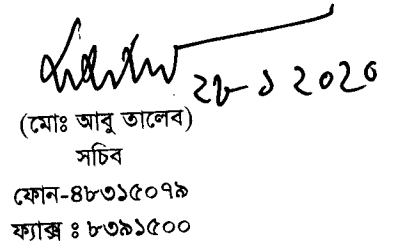 ২৮-১ ২০২০
(মোঃ আবু তালেব)
সচিব
ফোন-৪৮৩১৫০৭৯
ফ্যাক্স ঃ ৮৩৯১৫০০